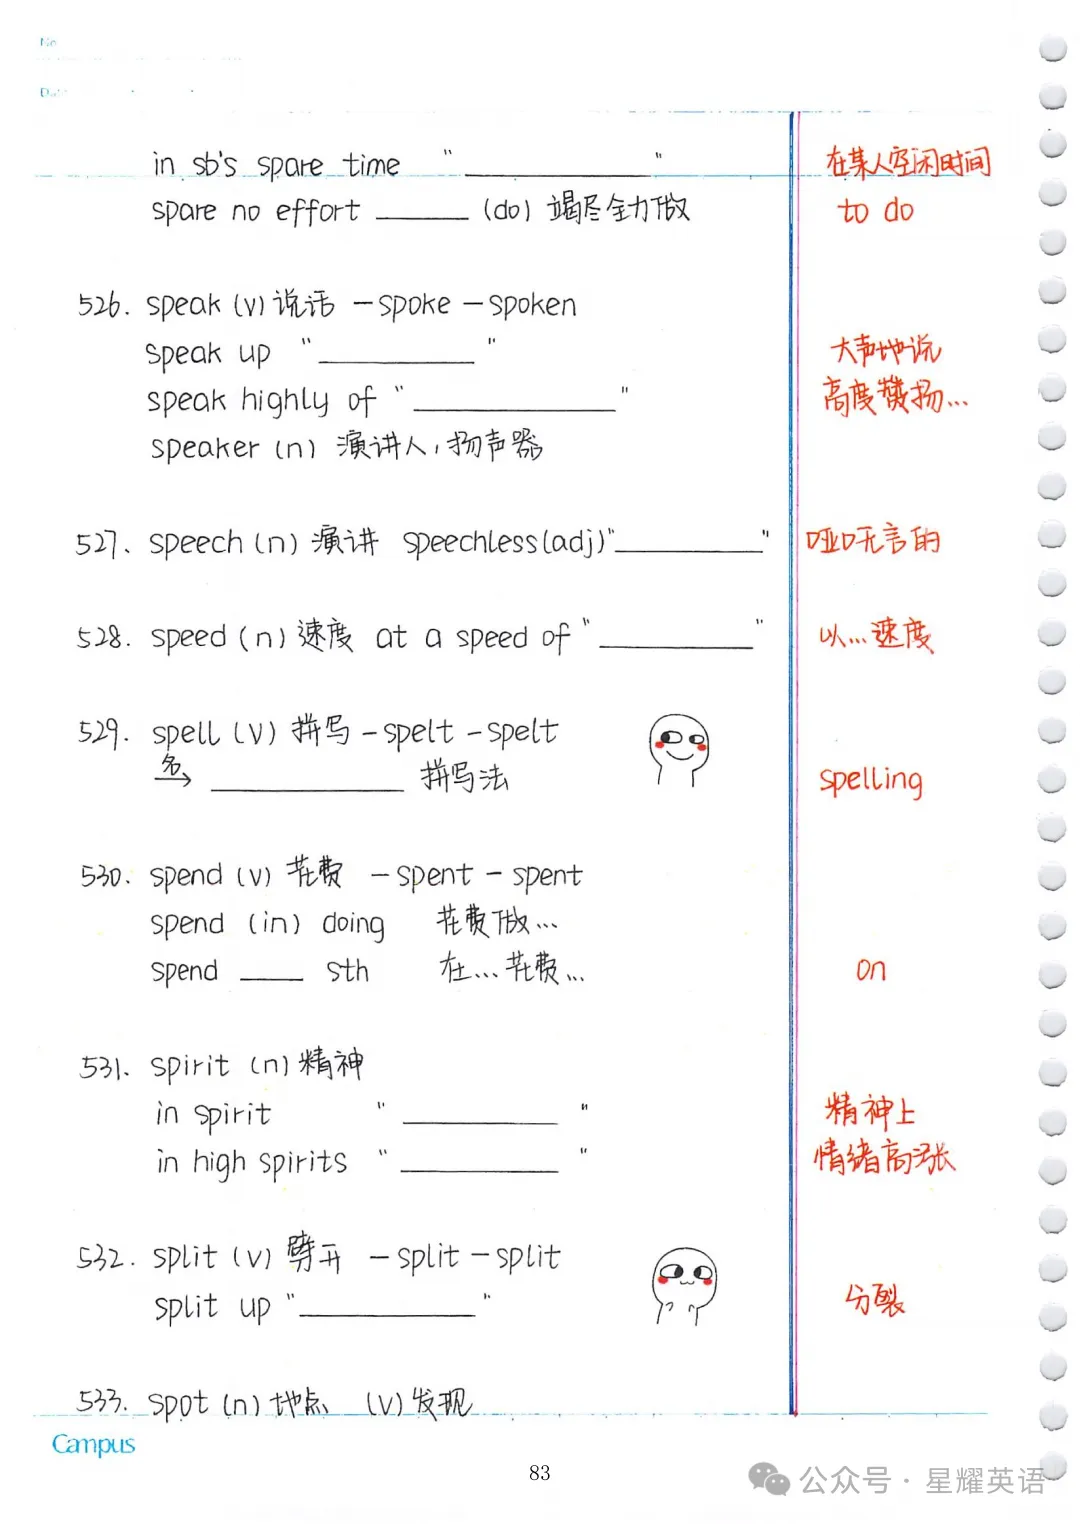 No
Date
in sb's spare time “__________” 在某人空闲时间
spare no effort ______ (do) 竭尽全力做 to do
526. speak (v) 说话 — spoke — spoken
speak up “__________” 大声地说
speak highly of “__________” 高度赞扬...
speaker (n) 演讲人, 扬声器
527. speech (n) 演讲 speechless (adj) “__________” 哑口无言的
528. speed (n) 速度 at a speed of “__________” 以...速度
529. spell (v) 拼写 — spelt — spelt
名→ __________ 拼写法 spelling
530. spend (v) 花费 — spent — spent
spend (in) doing 花费做...
spend ____ sth 在...花费... on
531. spirit (n) 精神
in spirit “__________” 精神上
in high spirits “__________” 情绪高涨
532. split (v) 劈开 — split — split
split up “__________” 分裂
533. spot (n) 地点 (v) 发现
Campus
83
公众号 · 星耀英语